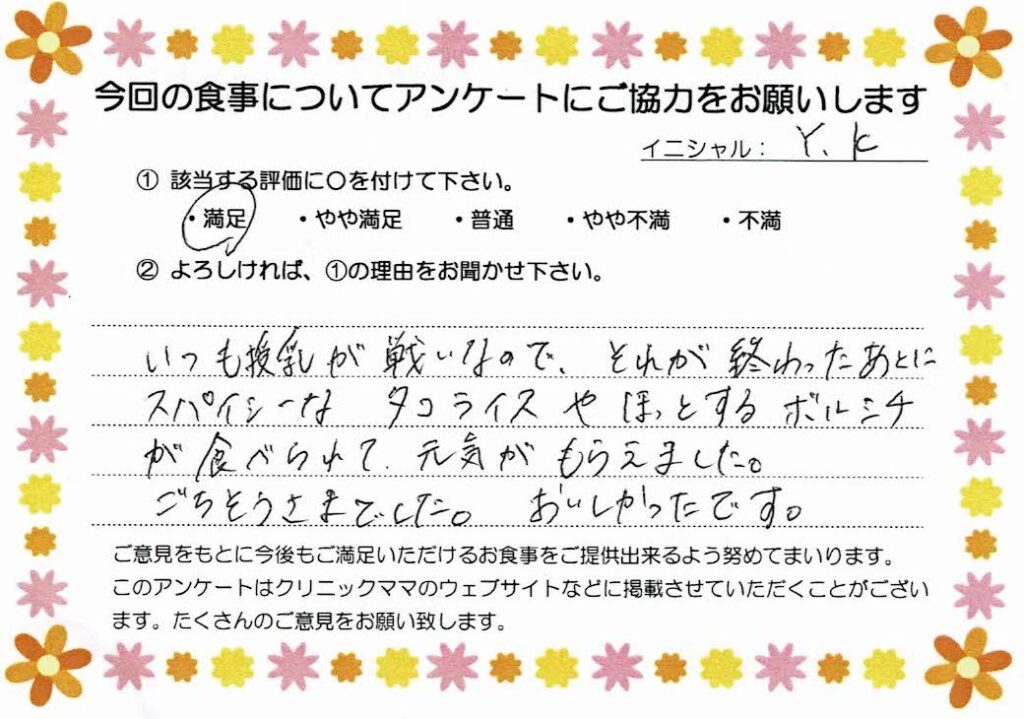 今回の食事についてアンケートにご協力をお願いします
イニシャル： Y.K
① 該当する評価に〇を付けて下さい。
・満足 ・やや満足 ・普通 ・やや不満 ・不満
② よろしければ、①の理由をお聞かせ下さい。
いつも授乳が戦いなので、それが終わったあとに
スパイシーな タコライス や ほっとする ボルシチ
が食べられて、元気が もらえました。
ごちそうさまでした。 おいしかったです。
ご意見をもとに今後もご満足いただけるお食事をご提供出来るよう努めてまいります。
このアンケートはクリニックママのウェブサイトなどに掲載させていただくことがござい
ます。たくさんのご意見をお願い致します。